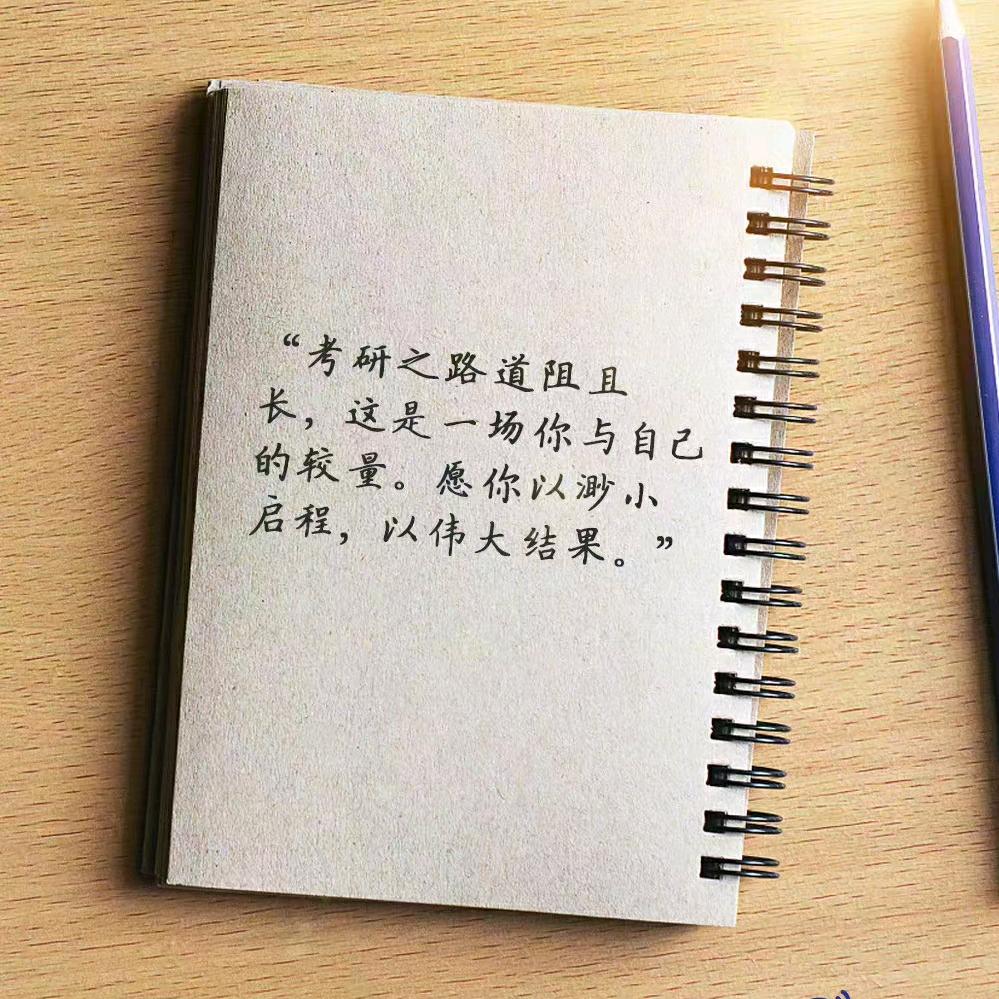 “考研之路道阻且
长，这是一场你与自己
的较量。愿你以渺小
启程，以伟大结果。”